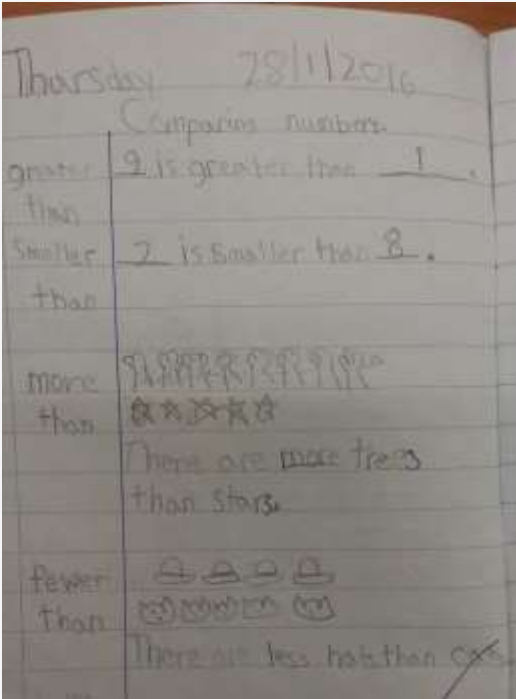 Thursday 28/1/2016
Comparing numbers.
greater 9 is greater than 1.
than
Smaller 2 is smaller than 8.
than
more
than
There are more trees
than stars.
fewer
than
There are less hats than cats